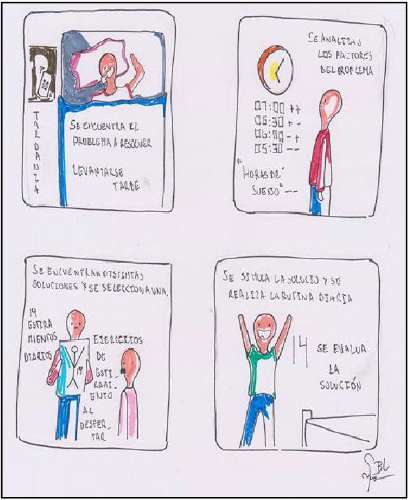 TARDANZA
SE ENCUENTRA EL
PROBLEMA A RESOLVER
LEVANTARSE
TARDE
SE ANALIZAN
LOS FACTORES
DEL PROBLEMA
07:00 ++
06:30 +-
06:00 -+
05:30 --
"HORAS DE
SUEÑO" --
SE ENCUENTRAN DISTINTAS
SOLUCIONES Y SE SELECCIONA UNA,
14
ESTIRA
MIENTOS
DIARIOS
14
EJERCICIOS
DE
ESTI-
RAMI-
ENTO
AL
DESPER-
TAR
SE SIMULA LA SOLUCIÓN Y SE
REALIZA LA RUTINA DIARIA
14
SE EVALUA
LA
SOLUCIÓN